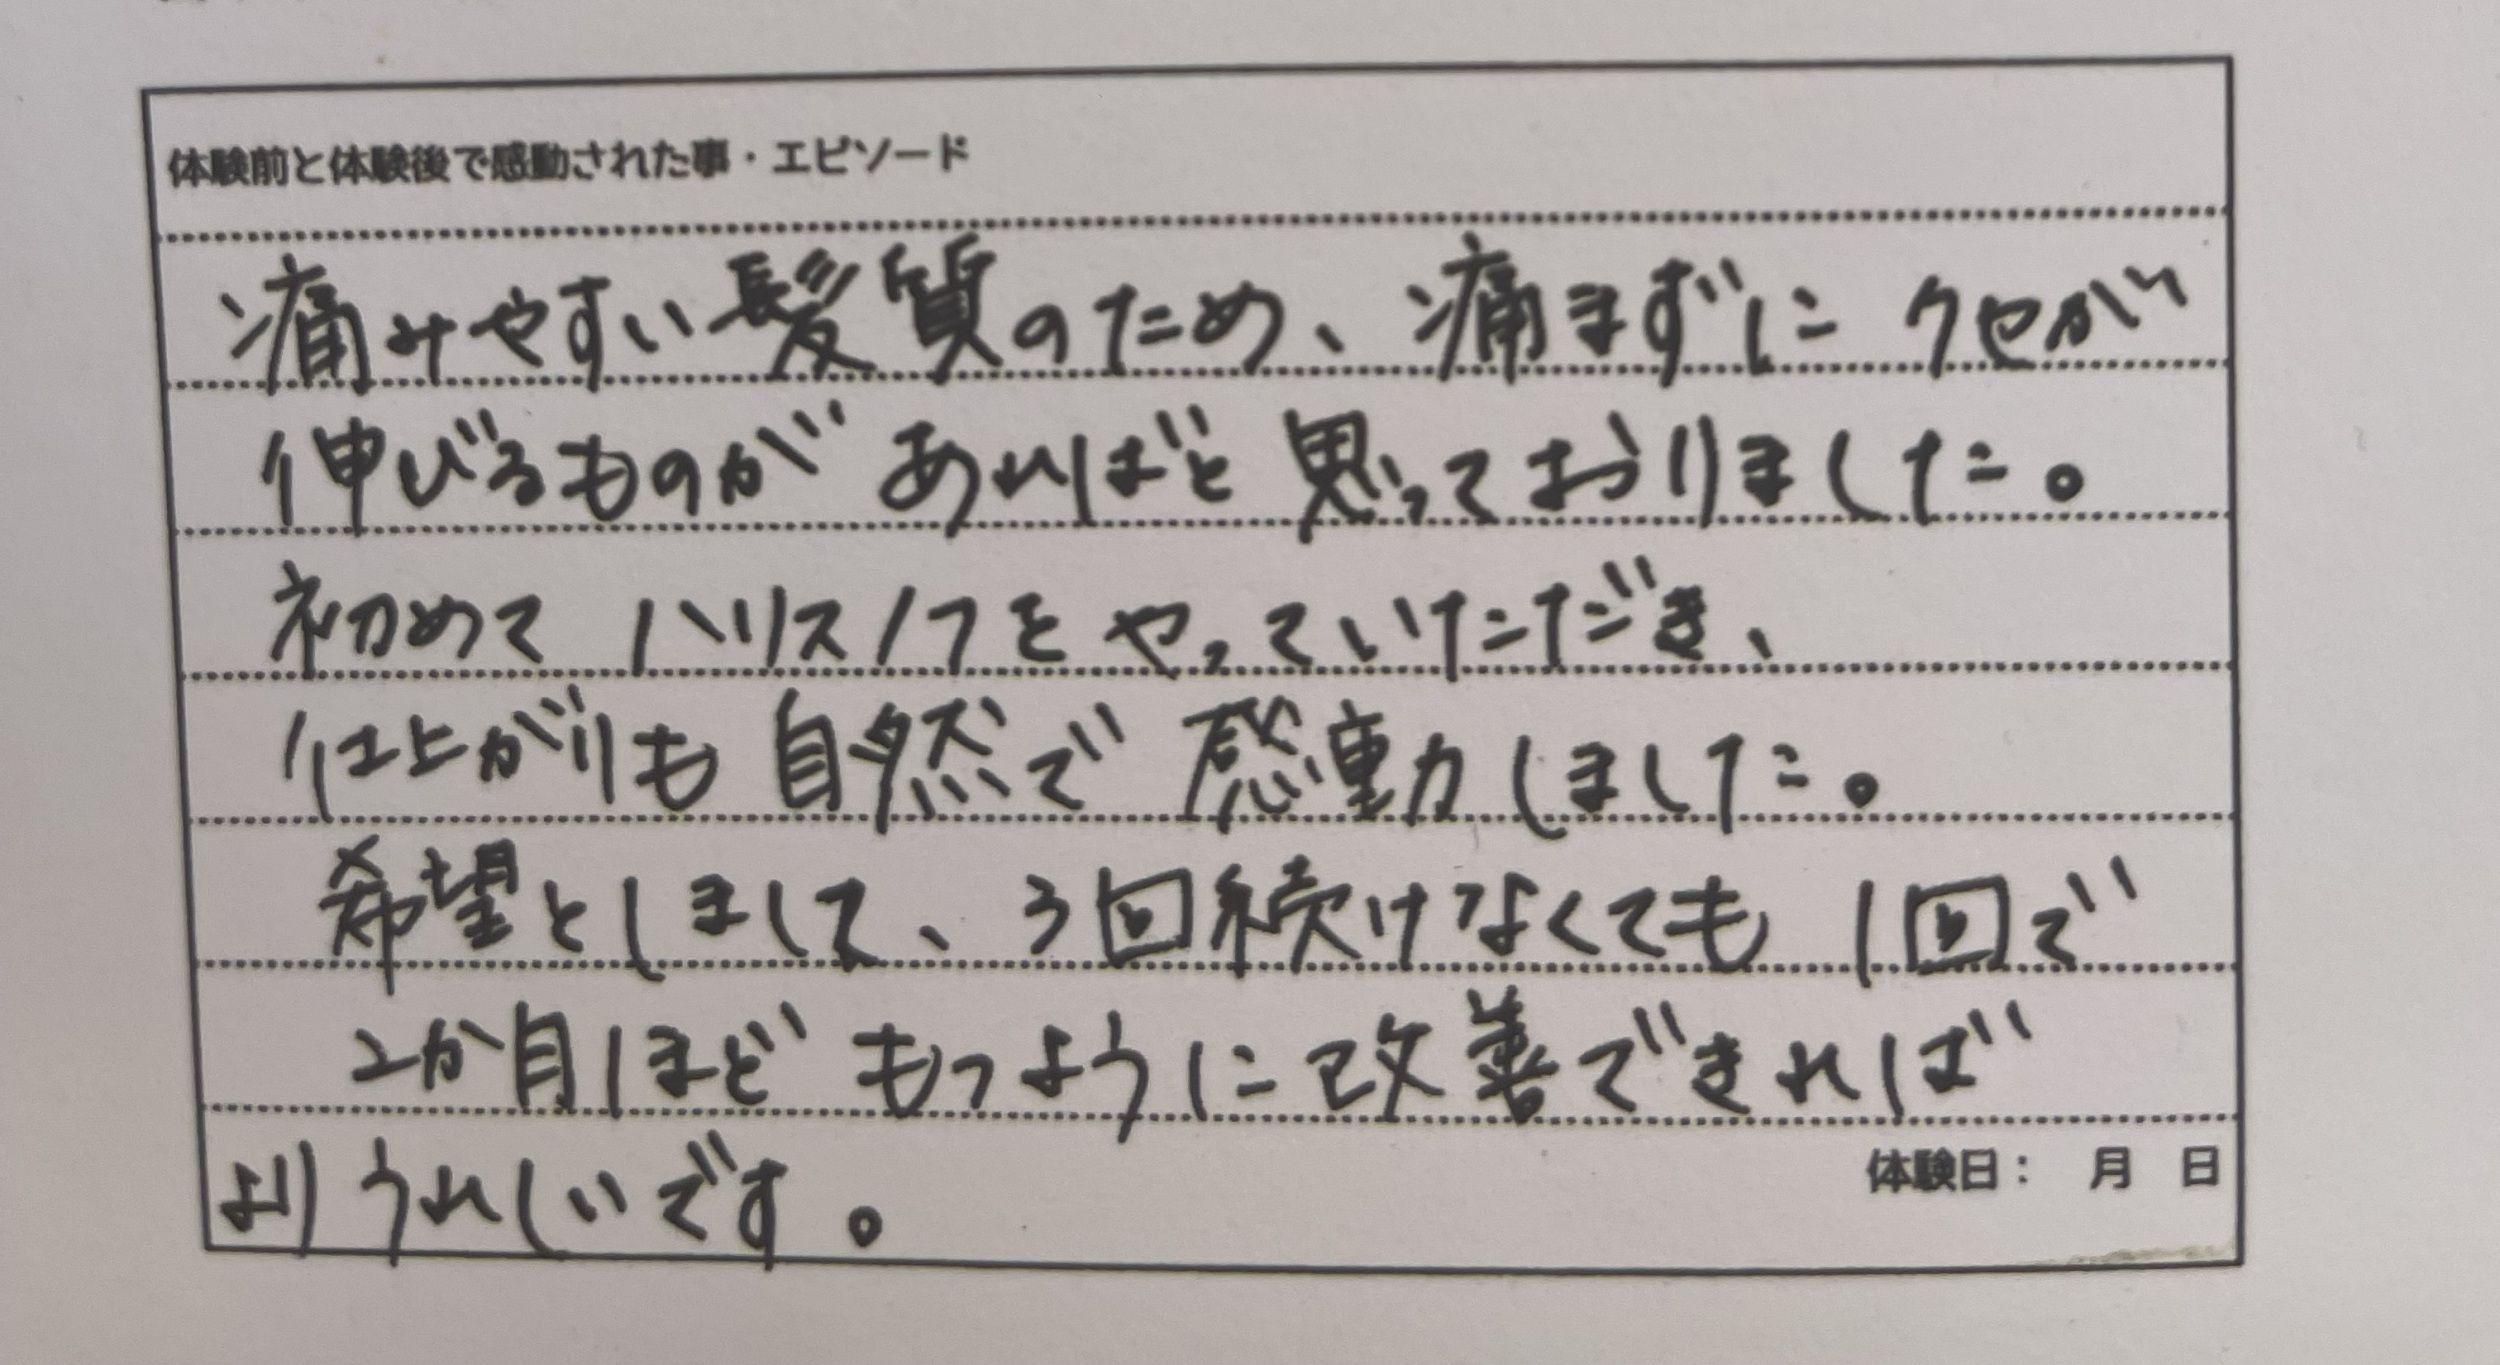 体験前と体験後で感動された事・エピソード
痛みやすい髪質のため、痛まずにクセが
伸びるものがあればと思っておりました。
初めてハリスノフをやっていただき、
仕上がりも自然で感動しました。
希望としまして、3回続けなくても1回で
2か月ほどもつように改善できれば
よりうれしいです。
体験日： 月 日